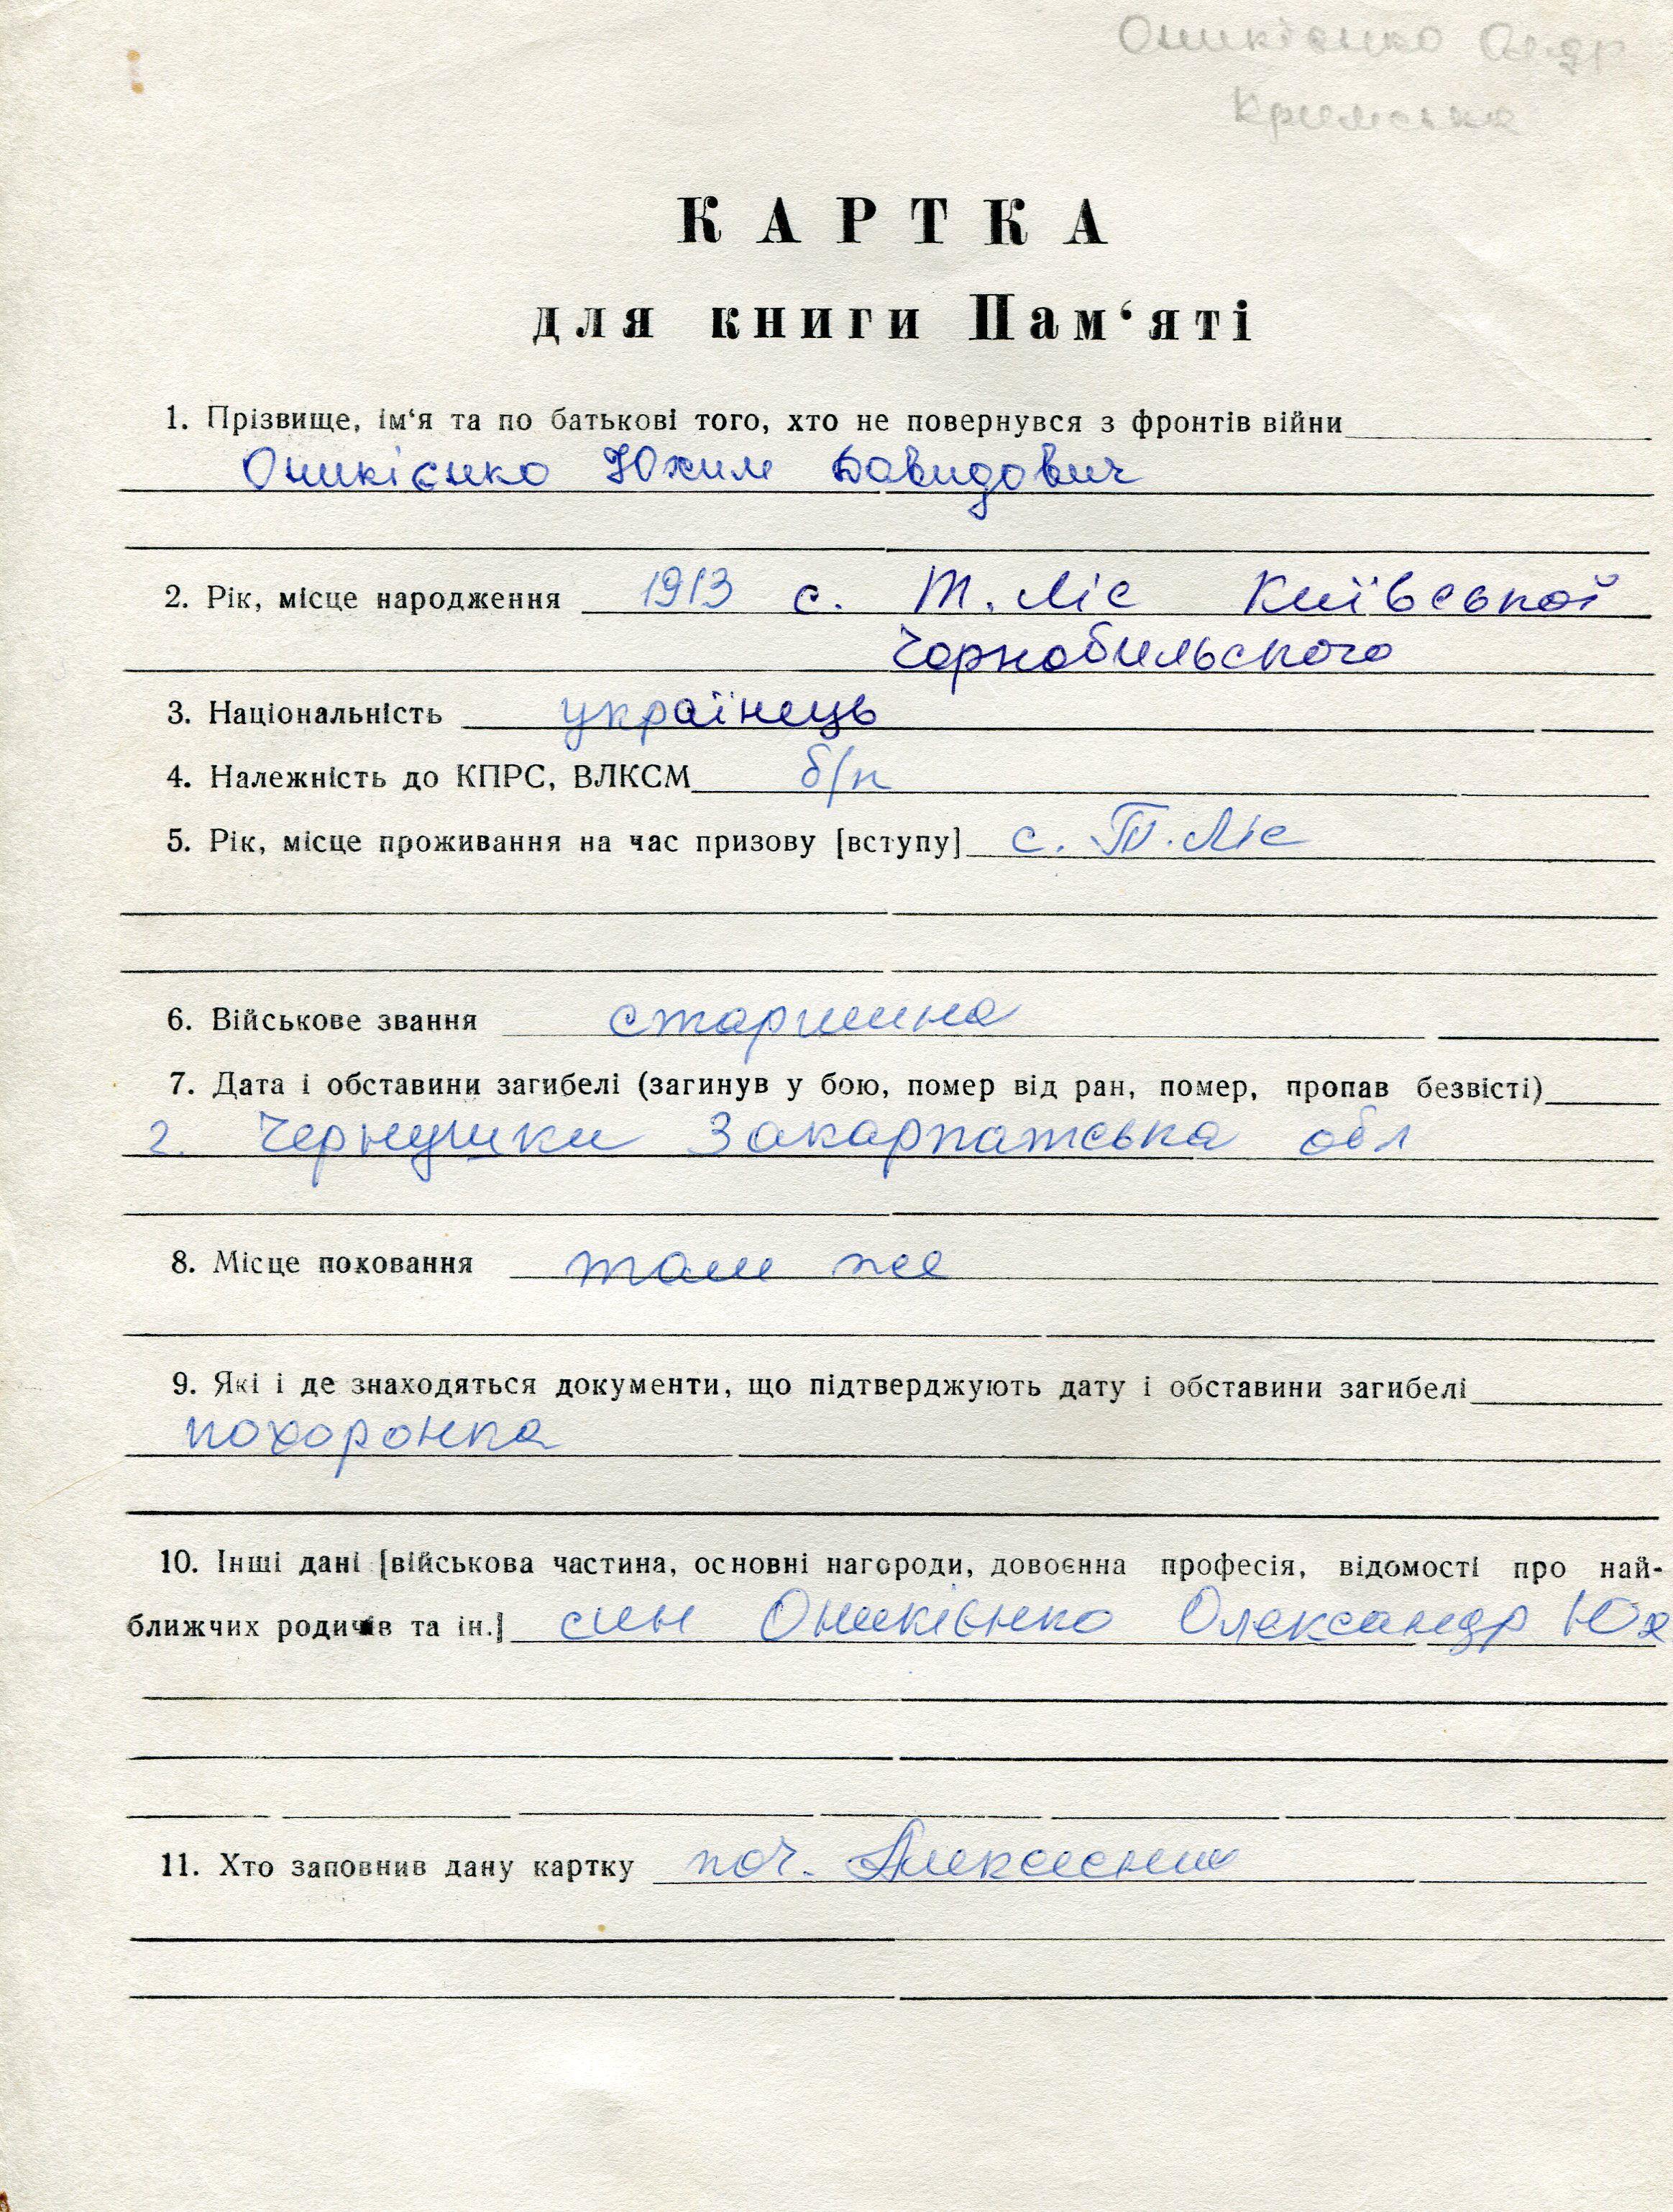 Оникієнко Ол-др
Кримська
КАРТКА
для книги Пам‘яті
1. Прізвище, ім‘я та по батькові того, хто не повернувся з фронтів війни
Оникієнко Юхим Давидович
2. Рік, місце народження 1913 с. Т. Ліс Київської
Чорнобильского
3. Національність українець
4. Належність до КПРС, ВЛКСМ б/п
5. Рік, місце проживання на час призову [вступу] с. Т. Ліс
6. Військове звання старшина
7. Дата і обставини загибелі (загинув у бою, помер від ран, помер, пропав безвісті)
г. Чернушки Закарпатська обл
8. Місце поховання там же
9. Які і де знаходяться документи, що підтверджують дату і обставини загибелі
похоронка
10. Інші дані [військова частина, основні нагороди, довоєнна професія, відомості про най-
ближчих родичів та ін.] син Оникієнко Олександр Юх
11. Хто заповнив дану картку